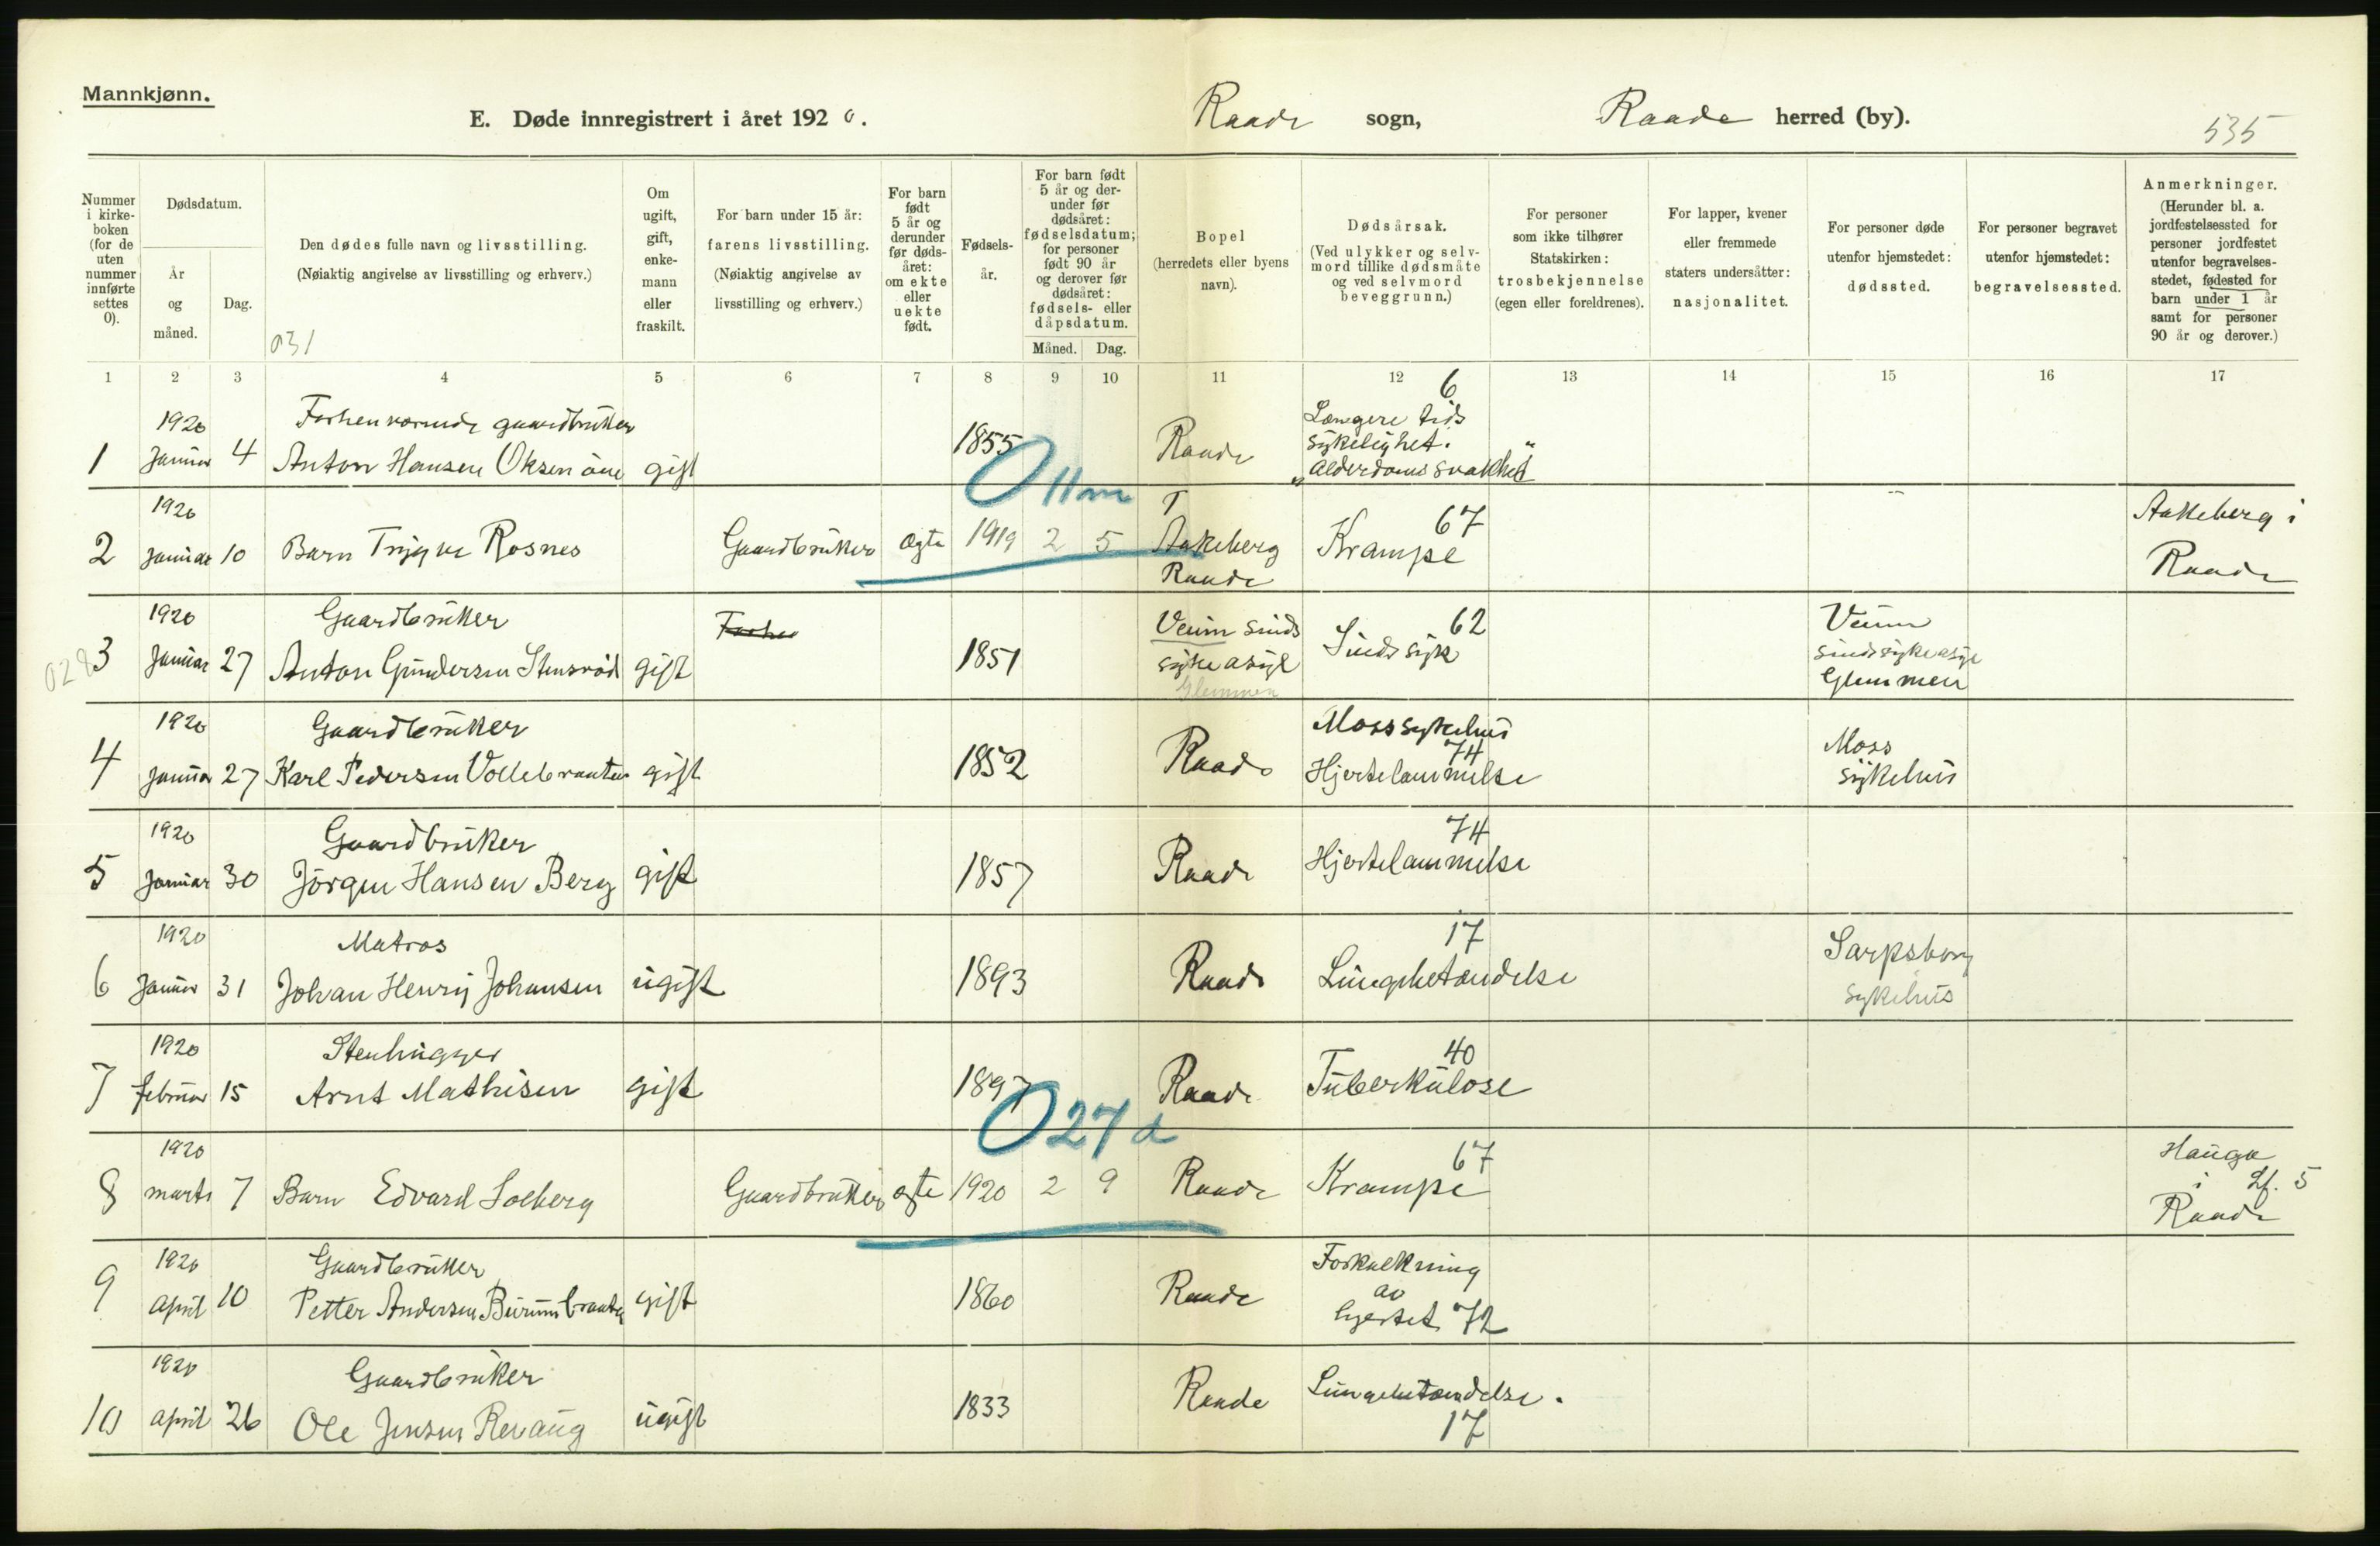 Mannkjønn.
E. Døde innregistrert i året 1920. Raade sogn, Raade herred (by).
535
Nummer i kirke- boken (for de uten nummer innførte settes 0).
Dødsdatum.
År og måned.
Dag.
Den dødes fulle navn og livsstilling.
(Nøiaktig angivelse av livsstilling og erhverv.)
031
Om ugift, gift, enke- mann eller fraskilt.
For barn under 15 år:
farens livsstilling.
(Nøiaktig angivelse av
livsstilling og erhverv.)
For barn født 5 år og derunder før døds- året: om ekte eller uekte født.
Fødsels- år.
For barn født 5 år og der- under før dødsåret: fødselsdatum; for personer født 90 år og derover før dødsåret: fødsels- eller dåpsdatum.
Måned. Dag.
Bopel
(herredets eller byens
navn).
Dødsårsak.
(Ved ulykker og selv-
mord tillike dødsmåte
og ved selvmord
beveggrunn.)
For personer
som ikke tilhører
Statskirken:
trosbekjennelse
(egen eller foreldrenes).
For lapper, kvener
eller fremmede
staters undersåtter:
nasjonalitet.
For personer døde
utenfor hjemstedet:
dødssted.
For personer begravet
utenfor hjemstedet:
begravelsessted.
Anmerkninger.
(Herunder bl. a.
jordfestelsessted for
personer jordfestet
utenfor begravelses-
stedet, fødested for
barn under 1 år
samt for personer
90 år og derover.)
1 2 3 4 5 6 7 8 9 10 11 12 13 14 15 16 17
6
1920 Forhenværende gaardbruker Længere tids
sykelighet.
1 Januar 4 Anton Hansen gift 1855 Raade
"Alderdomssvakhet"
0 11 m
1920 T 67 Aakeberg i
2 Januar 10 Barn Trygve Rosnes Gaardbruker ægte 1919 2 5 Aakeberg Krampe
Raade Raade
1920 Gaardbruker Veum sinds 62 Veum
029 3 Januar 27 Anton Gundersen Stensrød gift 1851 sykeasyl Sindssyk sindssykeasyl
Glemmen Glemmen
1920 Gaardbruker Moss sykehus
74 Moss
4 Januar 27 Karl Pedersen gift 1852 Raade Hjertelammelse sykehus
1920 Gaardbruker 74
5 Januar 30 Jörgen Hansen Berg gift 1857 Raade Hjertelammelse
1920 Matros 17 Sarpsborg
6 Januar 31 Johan Henry Johansen ugift 1893 Raade Lungebetændelse sykehus
1920 Stenhugger 40
7 februar 15 Arnt Mathisen gift 1897 Raade Tuberkulose
0 27 d
1920 67 Hauge
8 marts 7 Barn Edvard Solberg Gaardbruker ægte 1920 2 9 Raade Krampe i Lf. 5
Raade
1920 Gaardbruker Forkalkning
9 April 10 Petter Andersen gift 1860 Raade av
hjertet 72
1920 Gaardbruker
10 April 26 Ole Jensen Rev­aug ugift 1833 Raade Lungebetændelse.
17